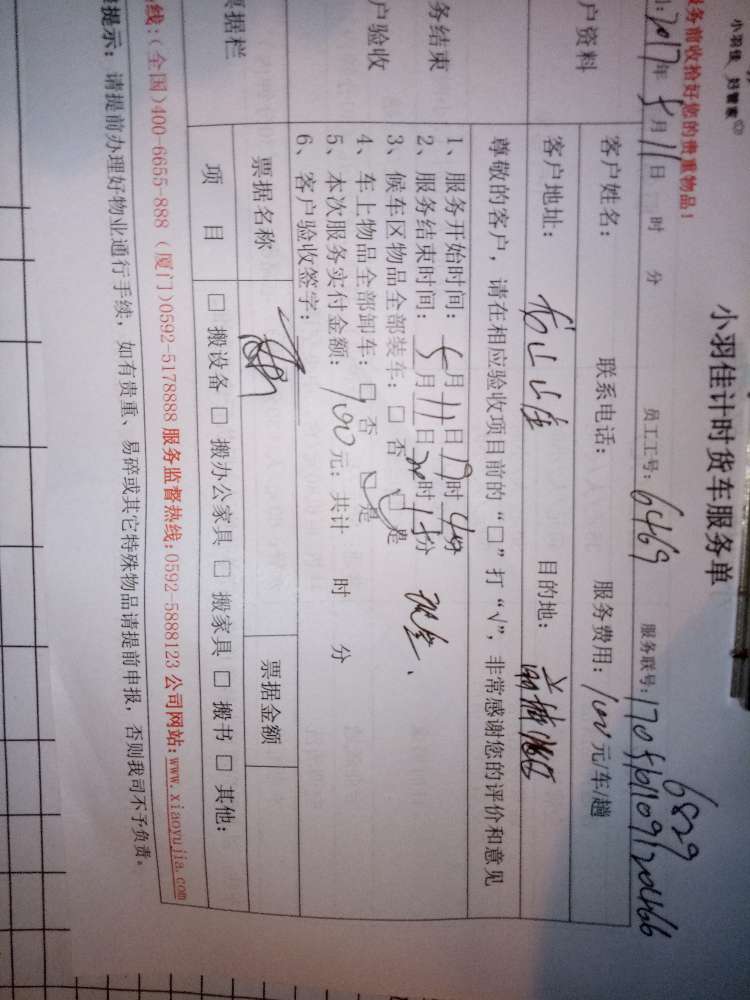 小羽佳 好管家
小羽佳计时货车服务单
务前收拾好您的贵重物品!
2017年5月11日 时 分 员工工号: 6469 服务联号:
6829
户资料
客户姓名: 联系电话: 服务费用: 100元/车/趟
客户地址: 目的地:
务结束
户验收
尊敬的客户,请在相应验收项目前的“□”打“√”,非常感谢您的评价和意见
1、服务开始时间: 5月11日19时
2、服务结束时间: 5月11日20时15分
3、候车区物品全部装车: □ 否 □ 是
4、车上物品全部卸车: □ 否 □ 是
5、本次服务实付金额: 100元; 共计 时 分
6、客户验收签字:
票据栏
票据名称 票据金额
项 目 □ 搬设备 □ 搬办公家具 □ 搬家具 □ 搬书 □ 其他:
线:(全国)400-6655-888 (厦门)0592-5178888 服务监督热线:0592-5888123 公司网站:www.xiaoyujia.com
提示: 请提前办理好物业通行手续, 如有贵重、易碎或其它特殊物品请提前申报, 否则我司不予负责。